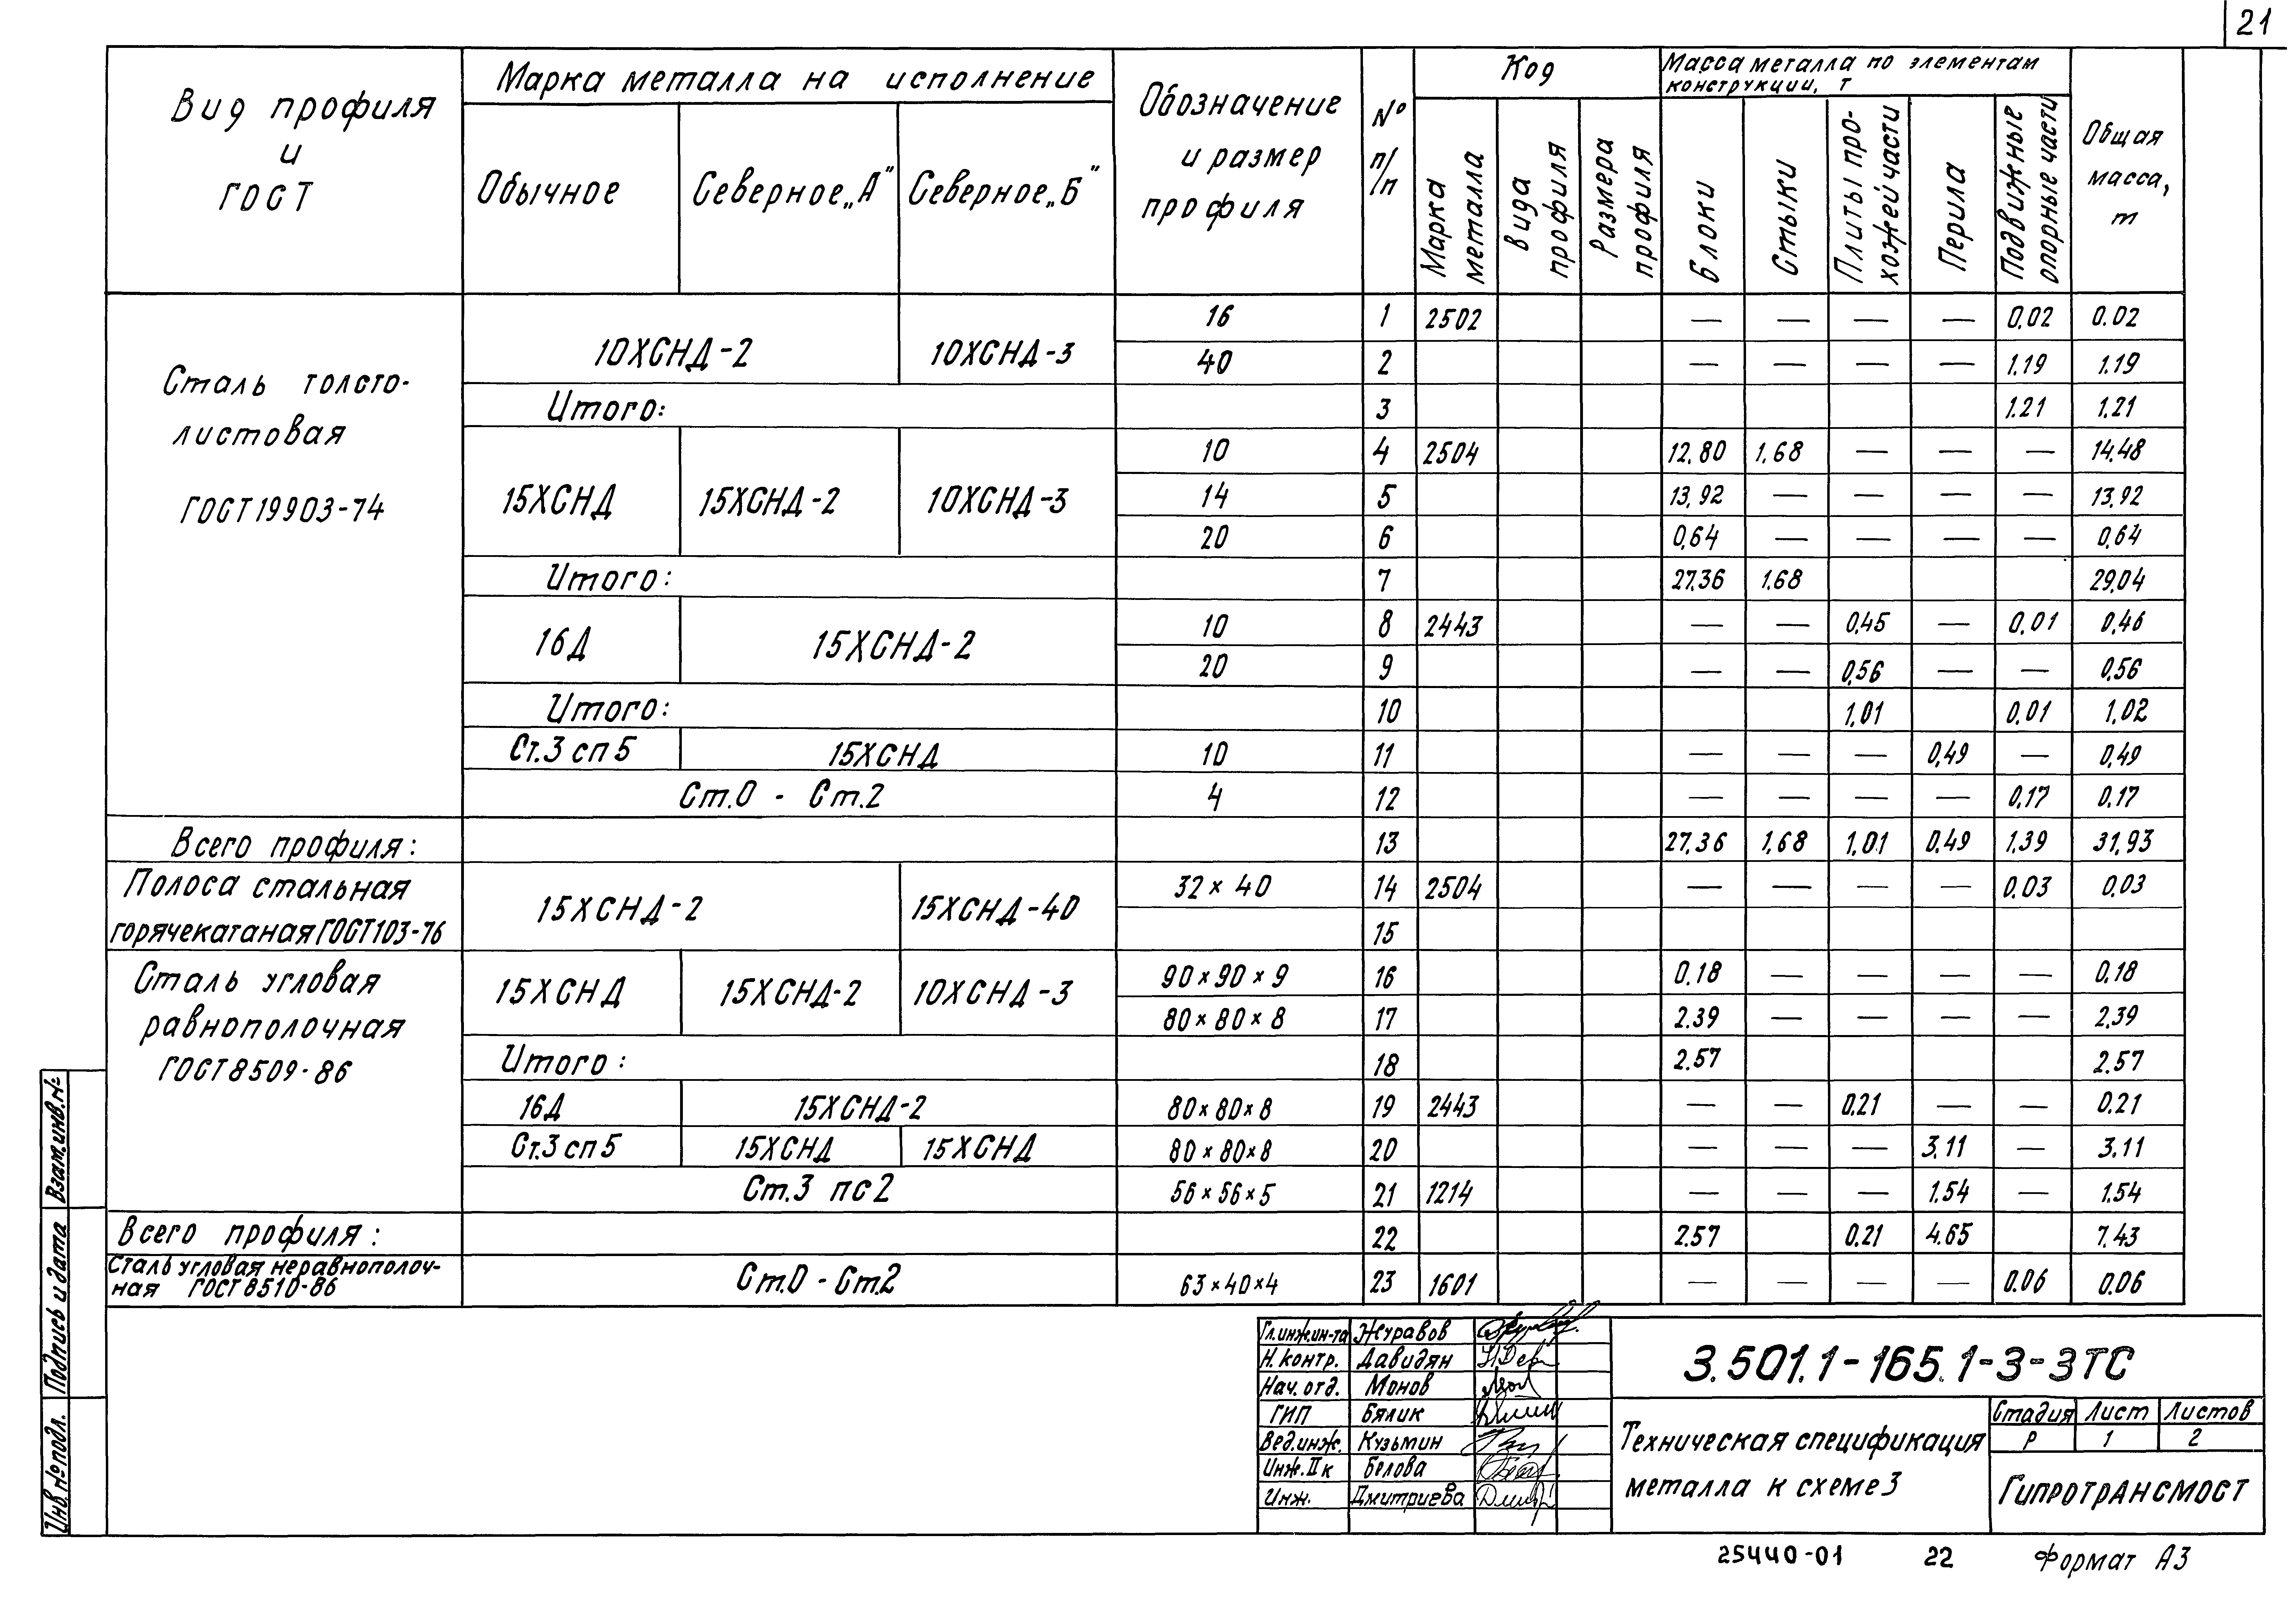 21
Вид профиля и ГОСТ
Марка металла на исполнение
Обычное
Северное „А"
Северное „Б"
Обозначение и размер профиля
№ п/п
Код
Марка металла
Вида профиля
Размера профиля
Масса металла по элементам конструкции, т
Блоки
Стыки
Плиты проезжей части
Перила
Подвижные опорные части
Общая масса, т
Сталь толсто-
листовая
ГОСТ 19903-74
10ХСНД-2 10ХСНД-3
16 1 2502 — — — — 0,02 0.02
40 2 — — — — 1.19 1.19
Итого: 3 1.21 1.21
15ХСНД 15ХСНД-2 10ХСНД-3
10 4 2504 12.80 1.68 — — — 14.48
14 5 13,92 — — — — 13,92
20 6 0,64 — — — — 0,64
Итого: 7 27.36 1.68 29,04
16Д 15ХСНД-2
10 8 2443 — — 0,45 — 0,01 0,46
20 9 — — 0,56 — — 0,56
Итого: 10 1,01 0.01 1,02
Ст.3 сп 5 15ХСНД 10 11 — — — 0,49 — 0,49
Ст.0 - Ст.2 4 12 — — — — 0,17 0,17
Всего профиля: 13 27.36 1,68 1,01 0.49 1.39 31,93
Полоса стальная
горячекатаная ГОСТ 103-76
15ХСНД-2 15ХСНД-40
32 × 40 14 2504 — — — — 0.03 0.03
15
Сталь угловая
равнополочная
ГОСТ 8509-86
15ХСНД 15ХСНД-2 10ХСНД-3
90 × 90 × 9 16 0.18 — — — — 0,18
80 × 80 × 8 17 2.39 — — — — 2,39
Итого: 18 2.57 2.57
16Д 15ХСНД-2 80 × 80 × 8 19 2443 — — 0.21 — — 0.21
Ст.3 сп 5 15ХСНД 15ХСНД 80 × 80 × 8 20 — — — 3.11 — 3.11
Ст.3 пс 2 56 × 56 × 5 21 1214 — — — 1.54 — 1.54
Всего профиля: 22 2.57 0.21 4.65 7.43
Сталь угловая неравнополоч-
ная ГОСТ 8510-86
Ст.0 - Ст.2 63 × 40 × 4 23 1601 — — — — 0.06 0.06
Взам.инв.№
Подпись и дата
Инв.№ подл.
Гл.инж.ин-та Журавов
Н.контр. Давидян
Нач.отд. Монов
ГИП Бялик
Вед.инж. Кузьмин
Инж.IIк Белова
Инж. Дмитриева
3.501.1-165.1-3-3ТС
Техническая спецификация
металла к схеме 3
Стадия Лист Листов
Р 1 2
Гипротрансмост
25440-01 22 Формат А3